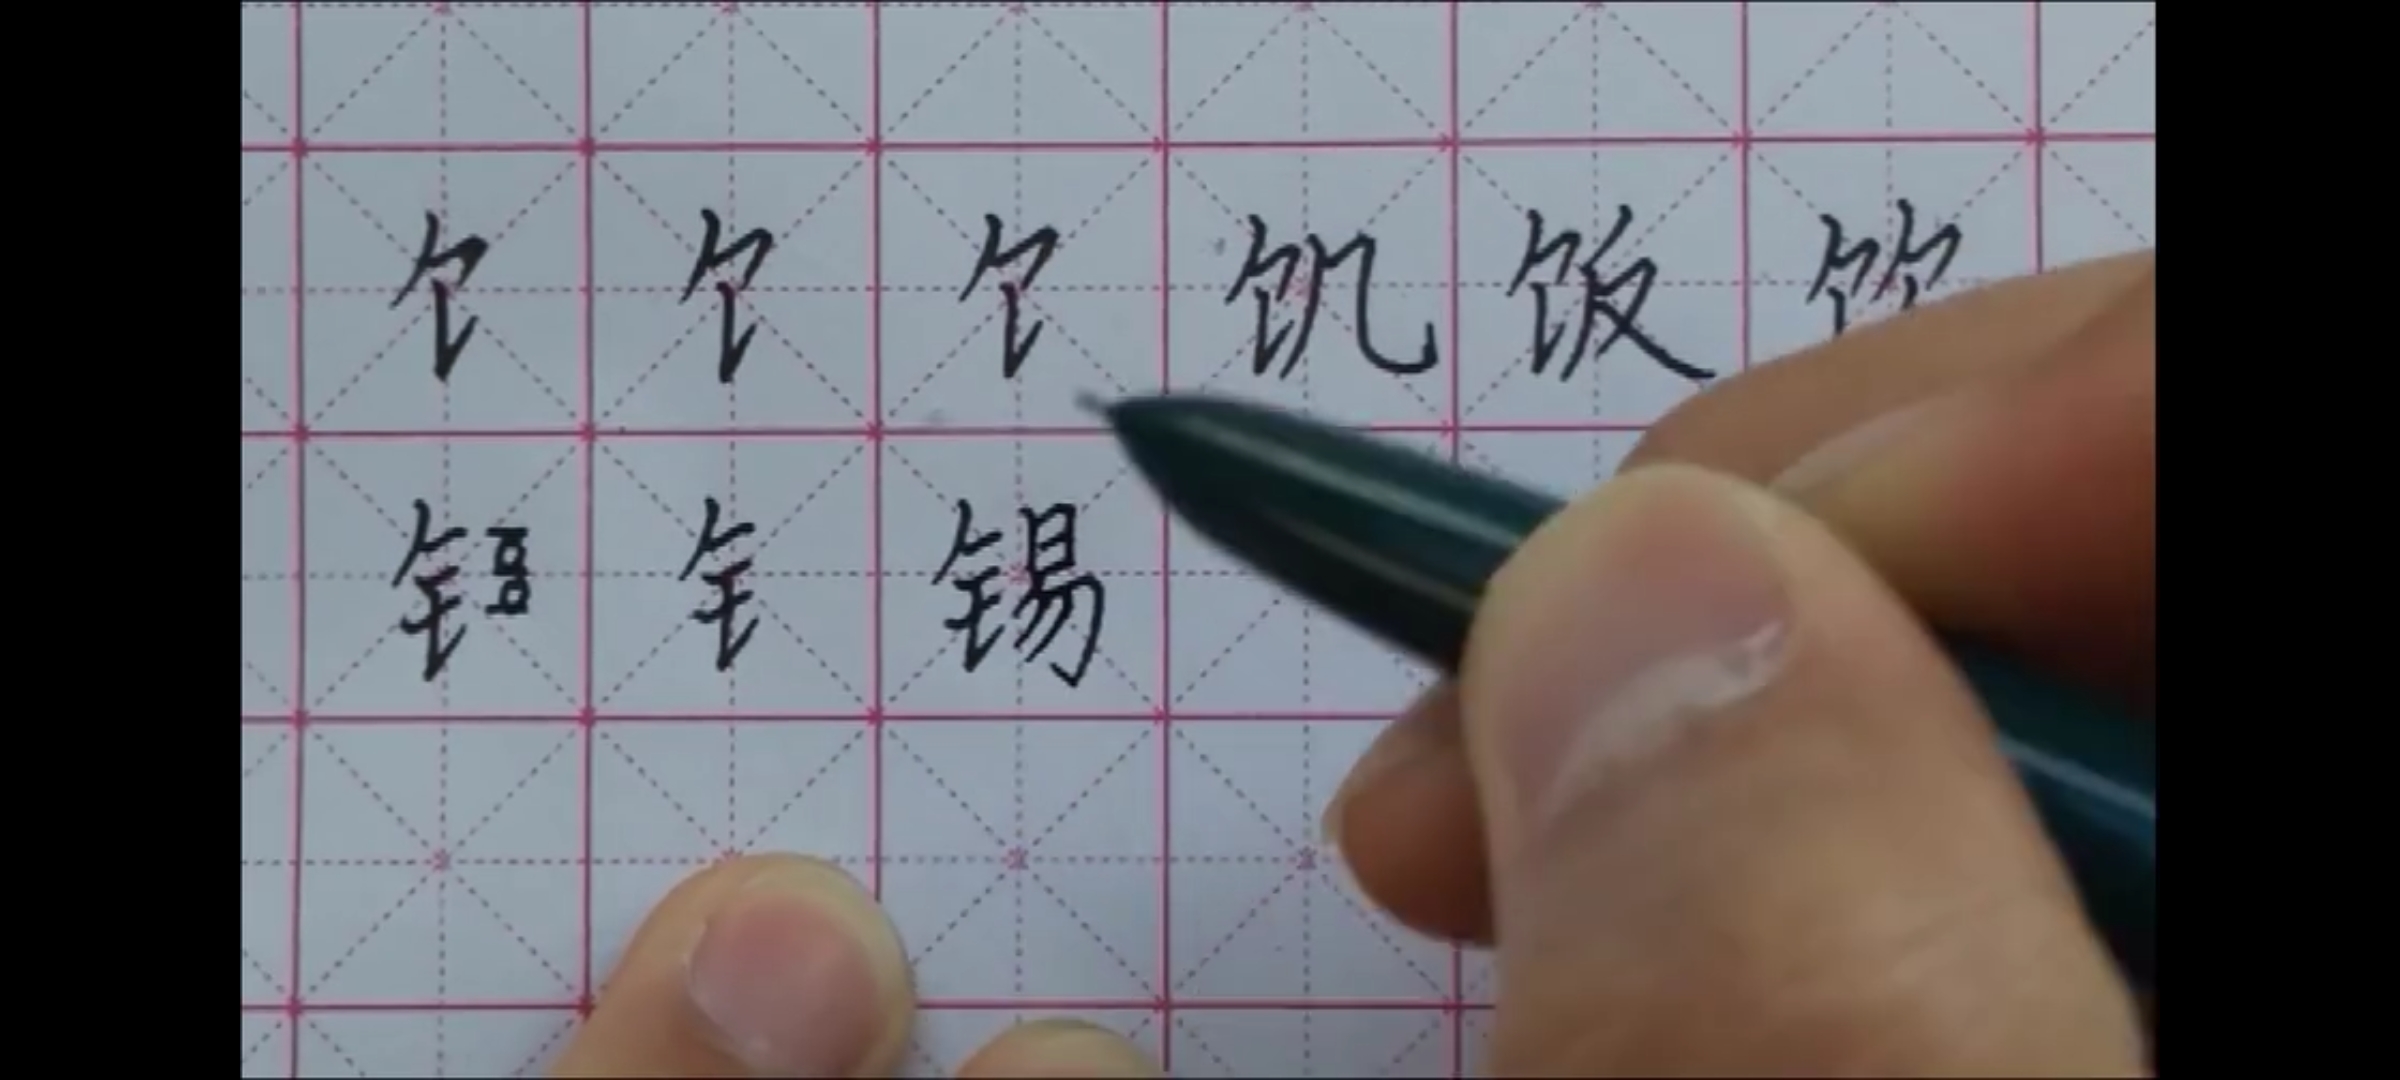 饣饣饣饥饭饮
钅钅锡